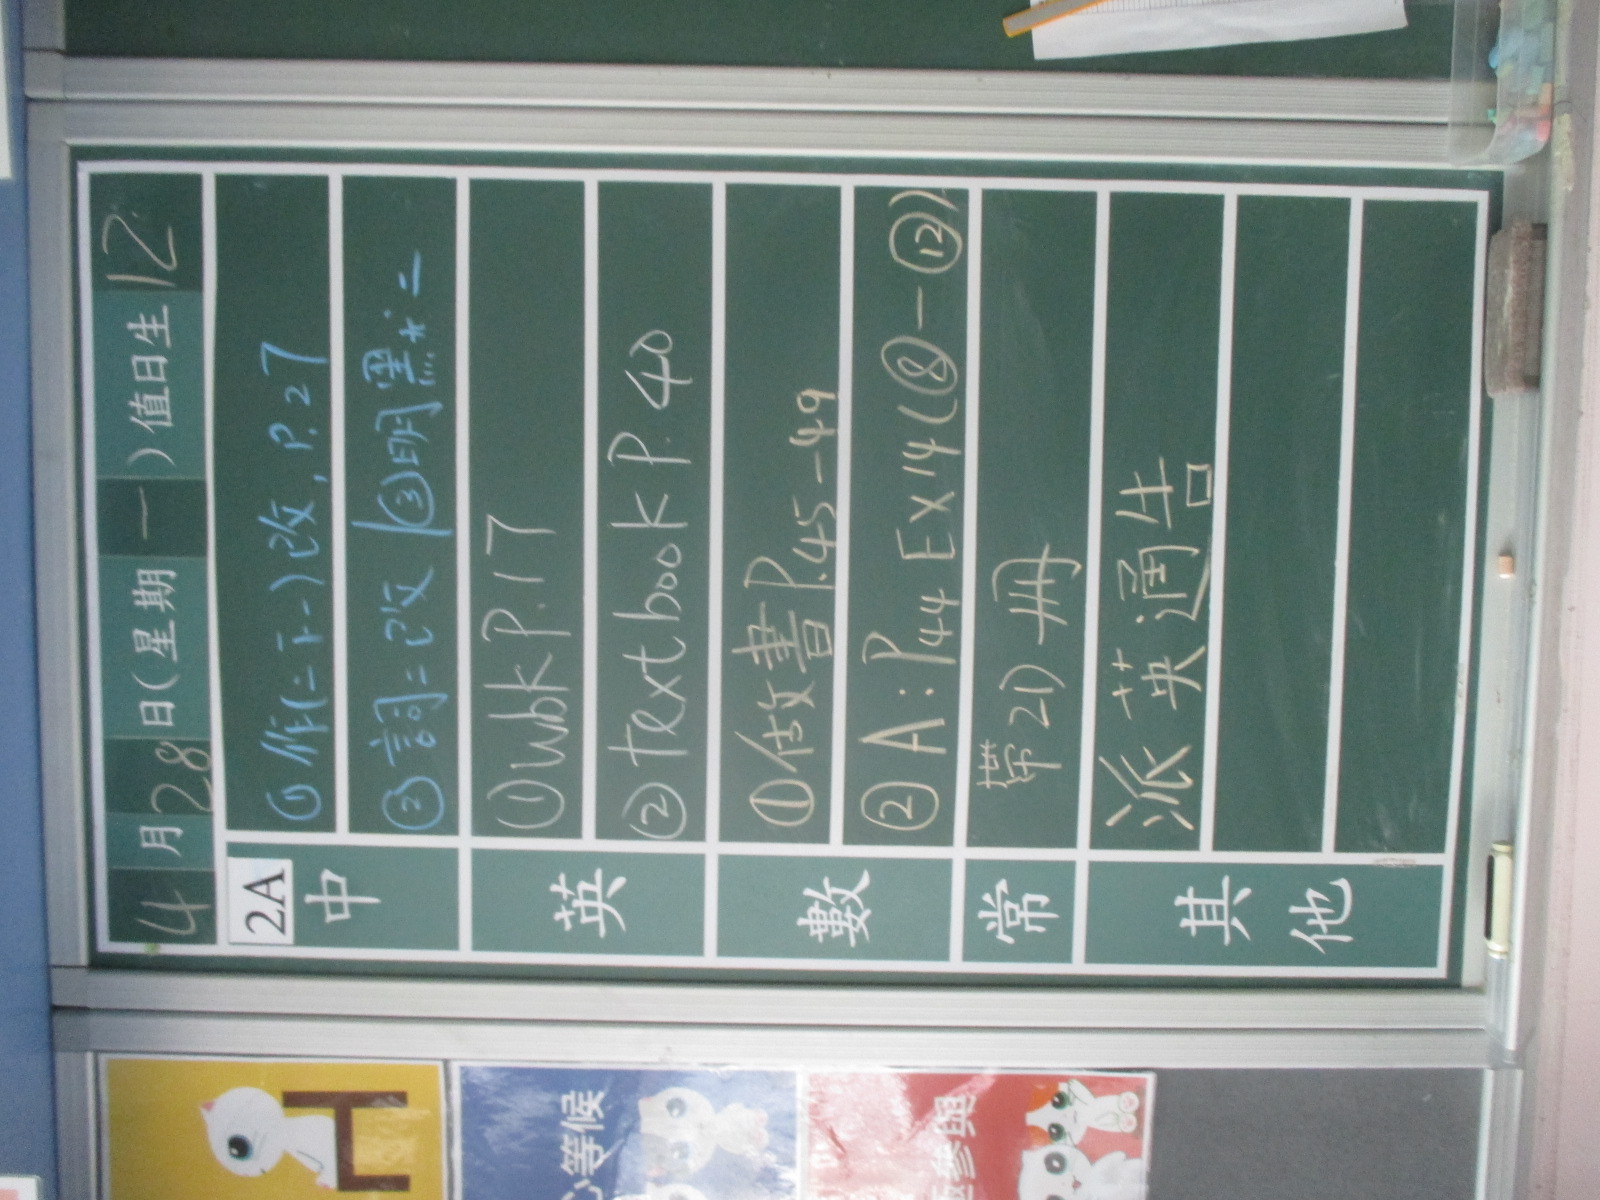 4月28日(星期一)值日生12
2A
中
①作(二下-)改,P.27
②詞二改 ③明黑
英
①wbk P.17
②textbook P.40
數
①做書P.45-49
②A:P44 Ex14(⑧-⑫)
常
帶21冊
其他
派英通告
心等候
參與